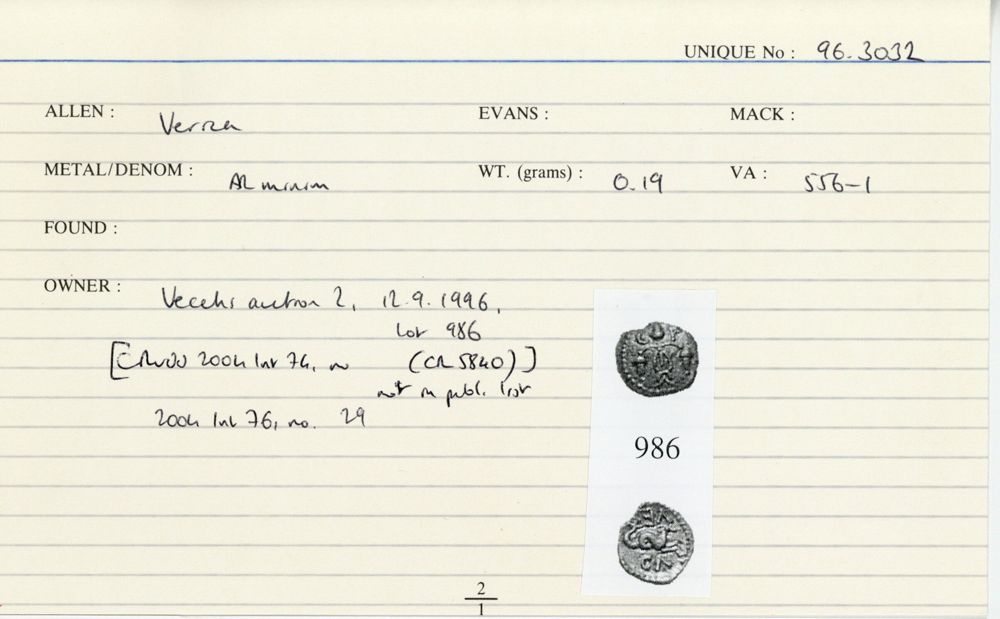 UNIQUE No : 96.3032
ALLEN : Verica EVANS : MACK :
METAL/DENOM : AR minim WT. (grams) : 0.19 VA : 556-1
FOUND :
OWNER : Vecchi auction 2, 12.9.1996,
lot 986
[ 2004 Int 76, no (CR 5840)]
not in publ. list
2004 Int 76, no. 29
986
2
1